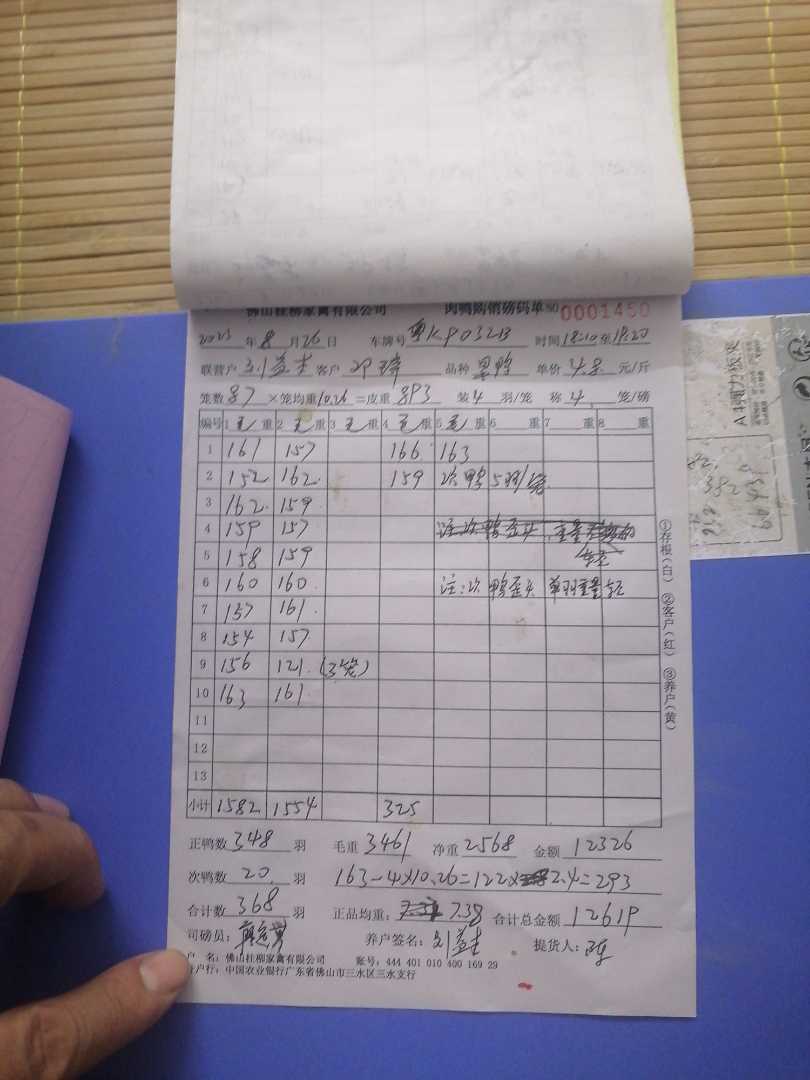 佛山桂柳家禽有限公司 肉鸭购销磅码单 NO 0001450
2023年8月26日 车牌号 粤KP032B 时间 18:10至19:20
联营户 刘益生 客户 邓 品种 鸭 单价 4.8 元/斤
笼数 87 ×笼均重 10.26 =皮重 893 装 4 羽/笼 称 4 笼/磅
编号 1 毛 重 2 毛 重 3 毛 重 4 毛 重 5 毛 重 6 重 7 重 8 重
1 161 157 166 163
2 152 162 159 次鸭 5羽/笼
3 162 159
4 159 157
5 158 159
6 160 160 注:次鸭歪头 单羽重量轻
7 157 161
8 154 157
9 156 121 (3笼)
10 163 161
11
12
13
小计 1582 1554 325
正鸭数 348 羽 毛重 3461 净重 2568 金额 12326
次鸭数 20 羽 163-4×10.26=122×2.4=293
合计数 368 羽 正品均重: 7.38 合计总金额 12619
司磅员: 养户签名: 刘益生 提货人:
户 名: 佛山桂柳家禽有限公司 账号: 444 401 010 400 169 29
户行: 中国农业银行广东省佛山市三水区三水支行
①存根(白) ②客户(红) ③养户(黄)
A4强力板夹